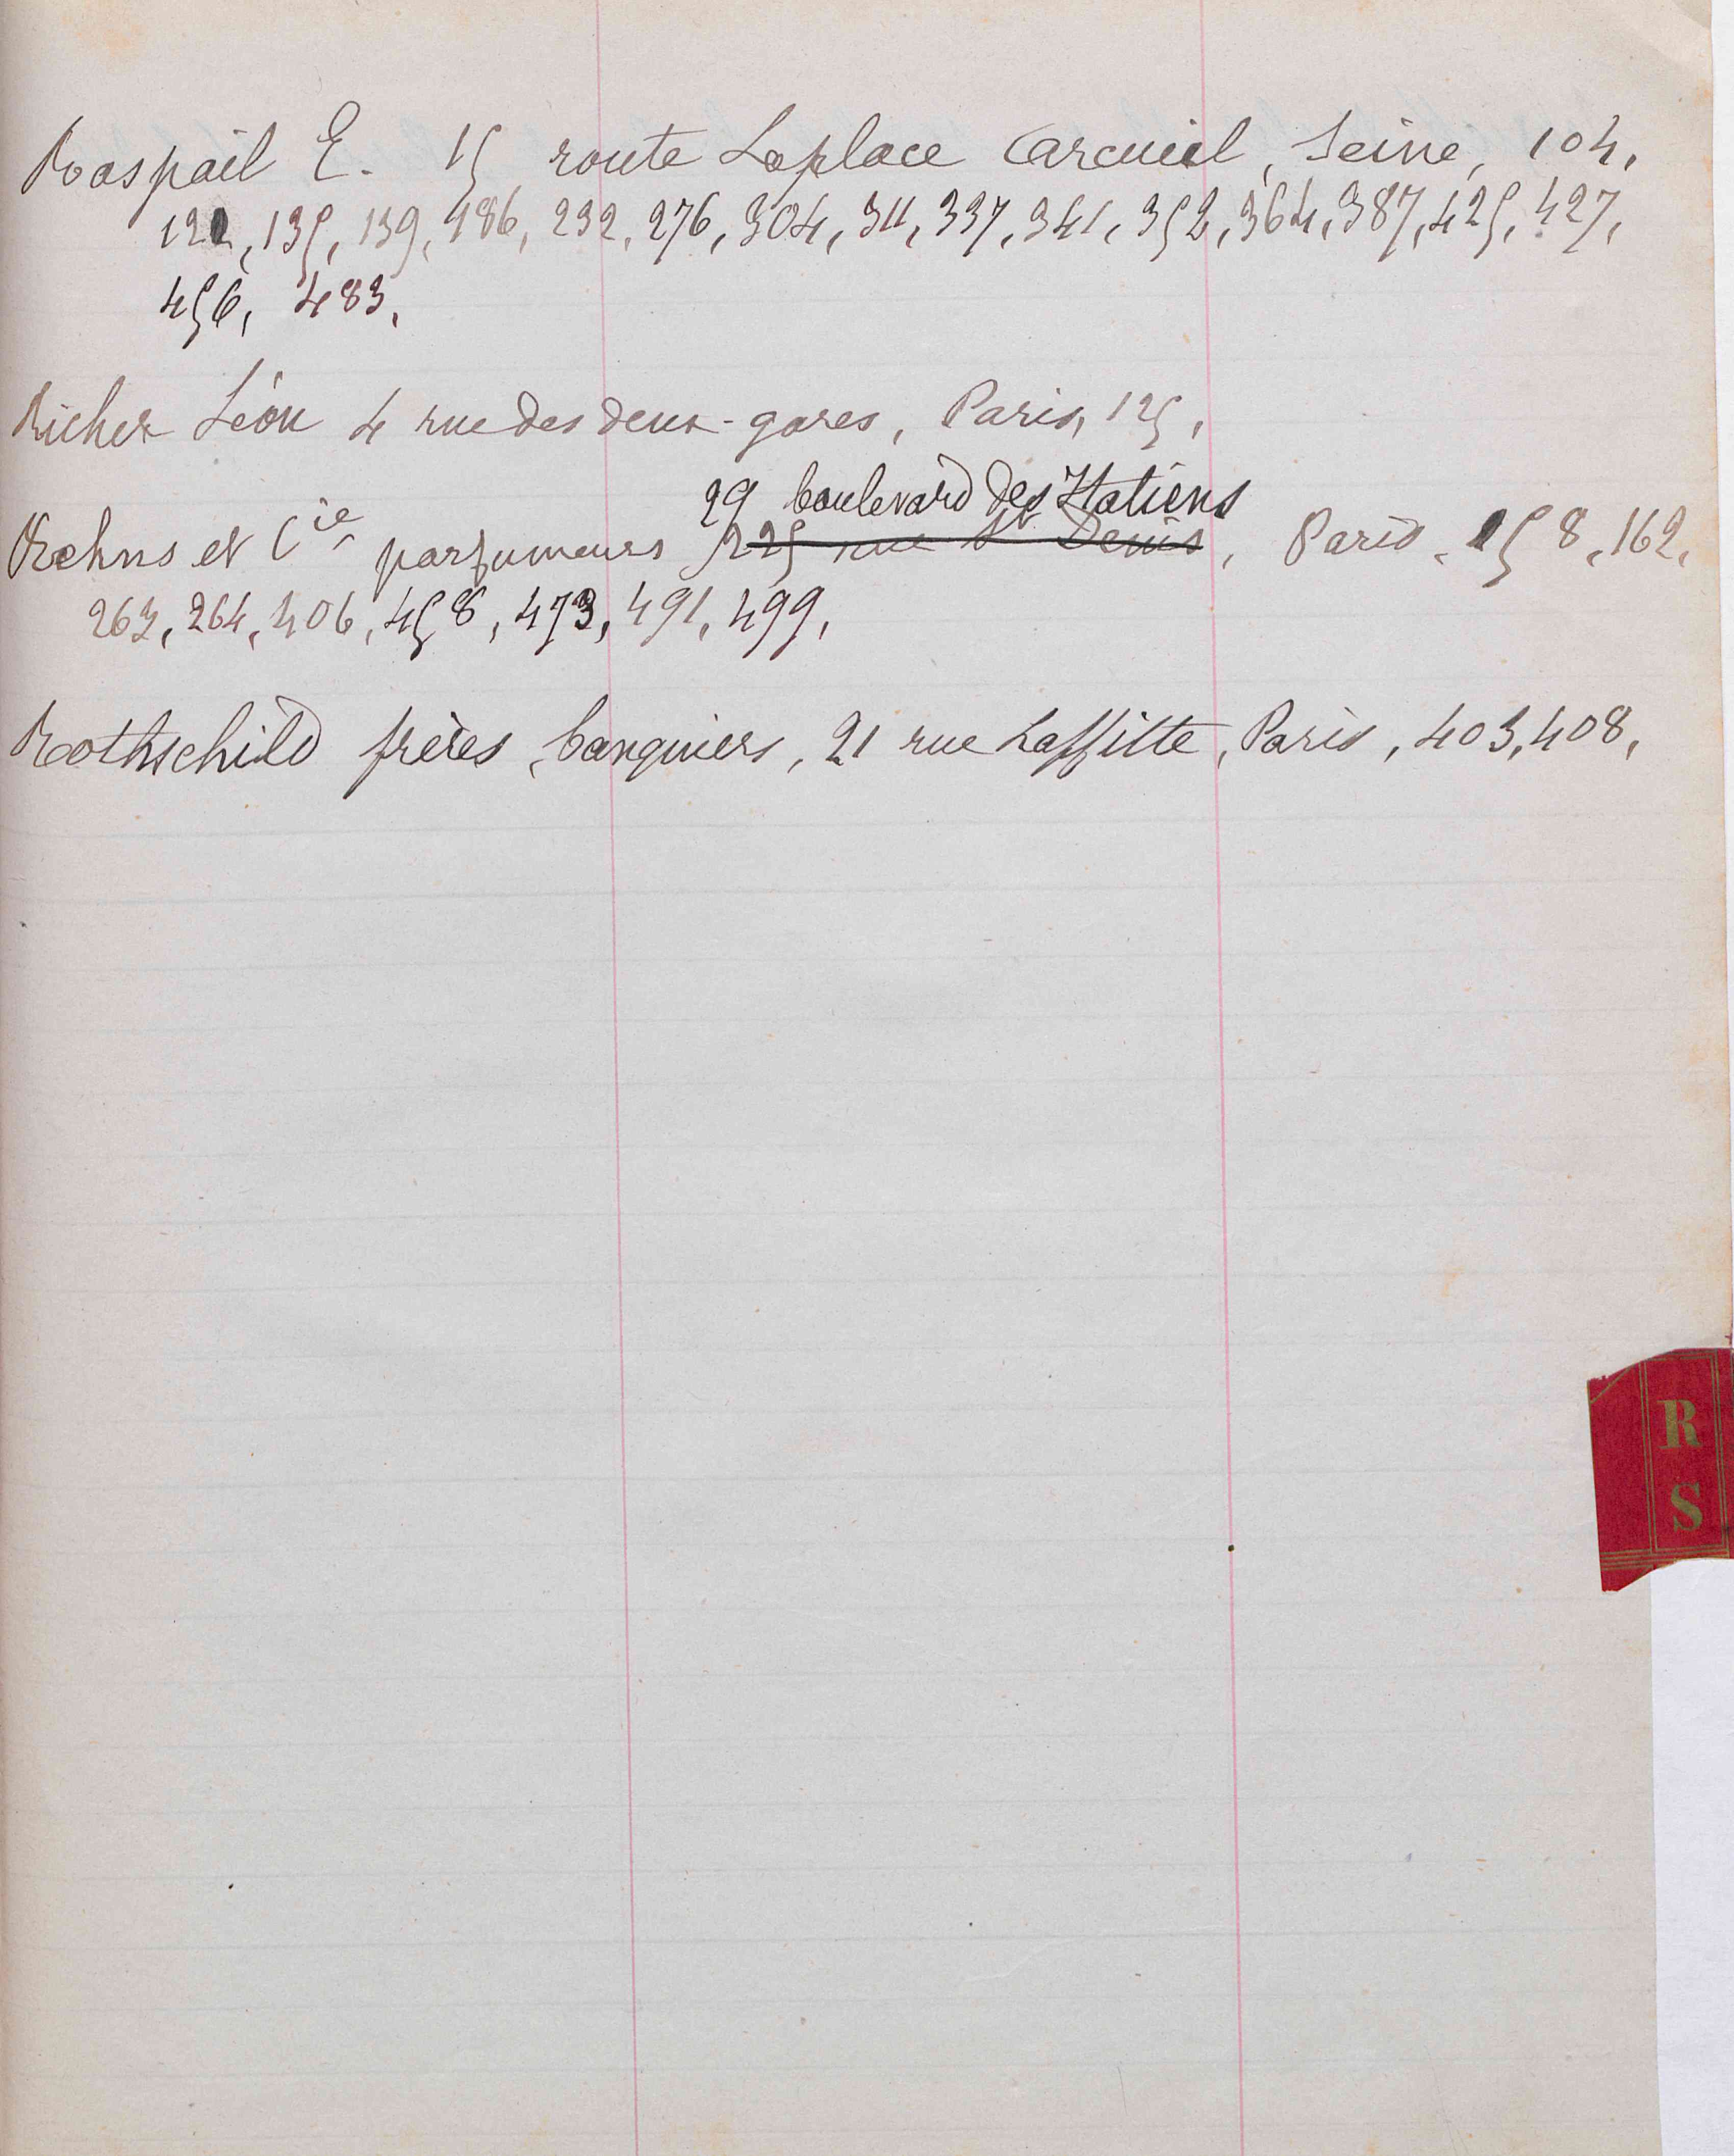 Raspail E. 15 route Laplace Carcueil, Seine, 104,
122, 135, 139, 186, 232, 276, 304, 311, 337, 341, 352, 364, 387, 425, 427,
456, 483,
Richer Léon 4 rue des deux-gares, Paris, 125,
29 boulevard des Italiens
Rehns et Cie parfumeurs 225 rue St Denis, Paris, 158, 162,
263, 264, 406, 458, 473, 491, 499,
Rothschild frères, banquiers, 21 rue Laffitte, Paris, 403, 408,
R
S